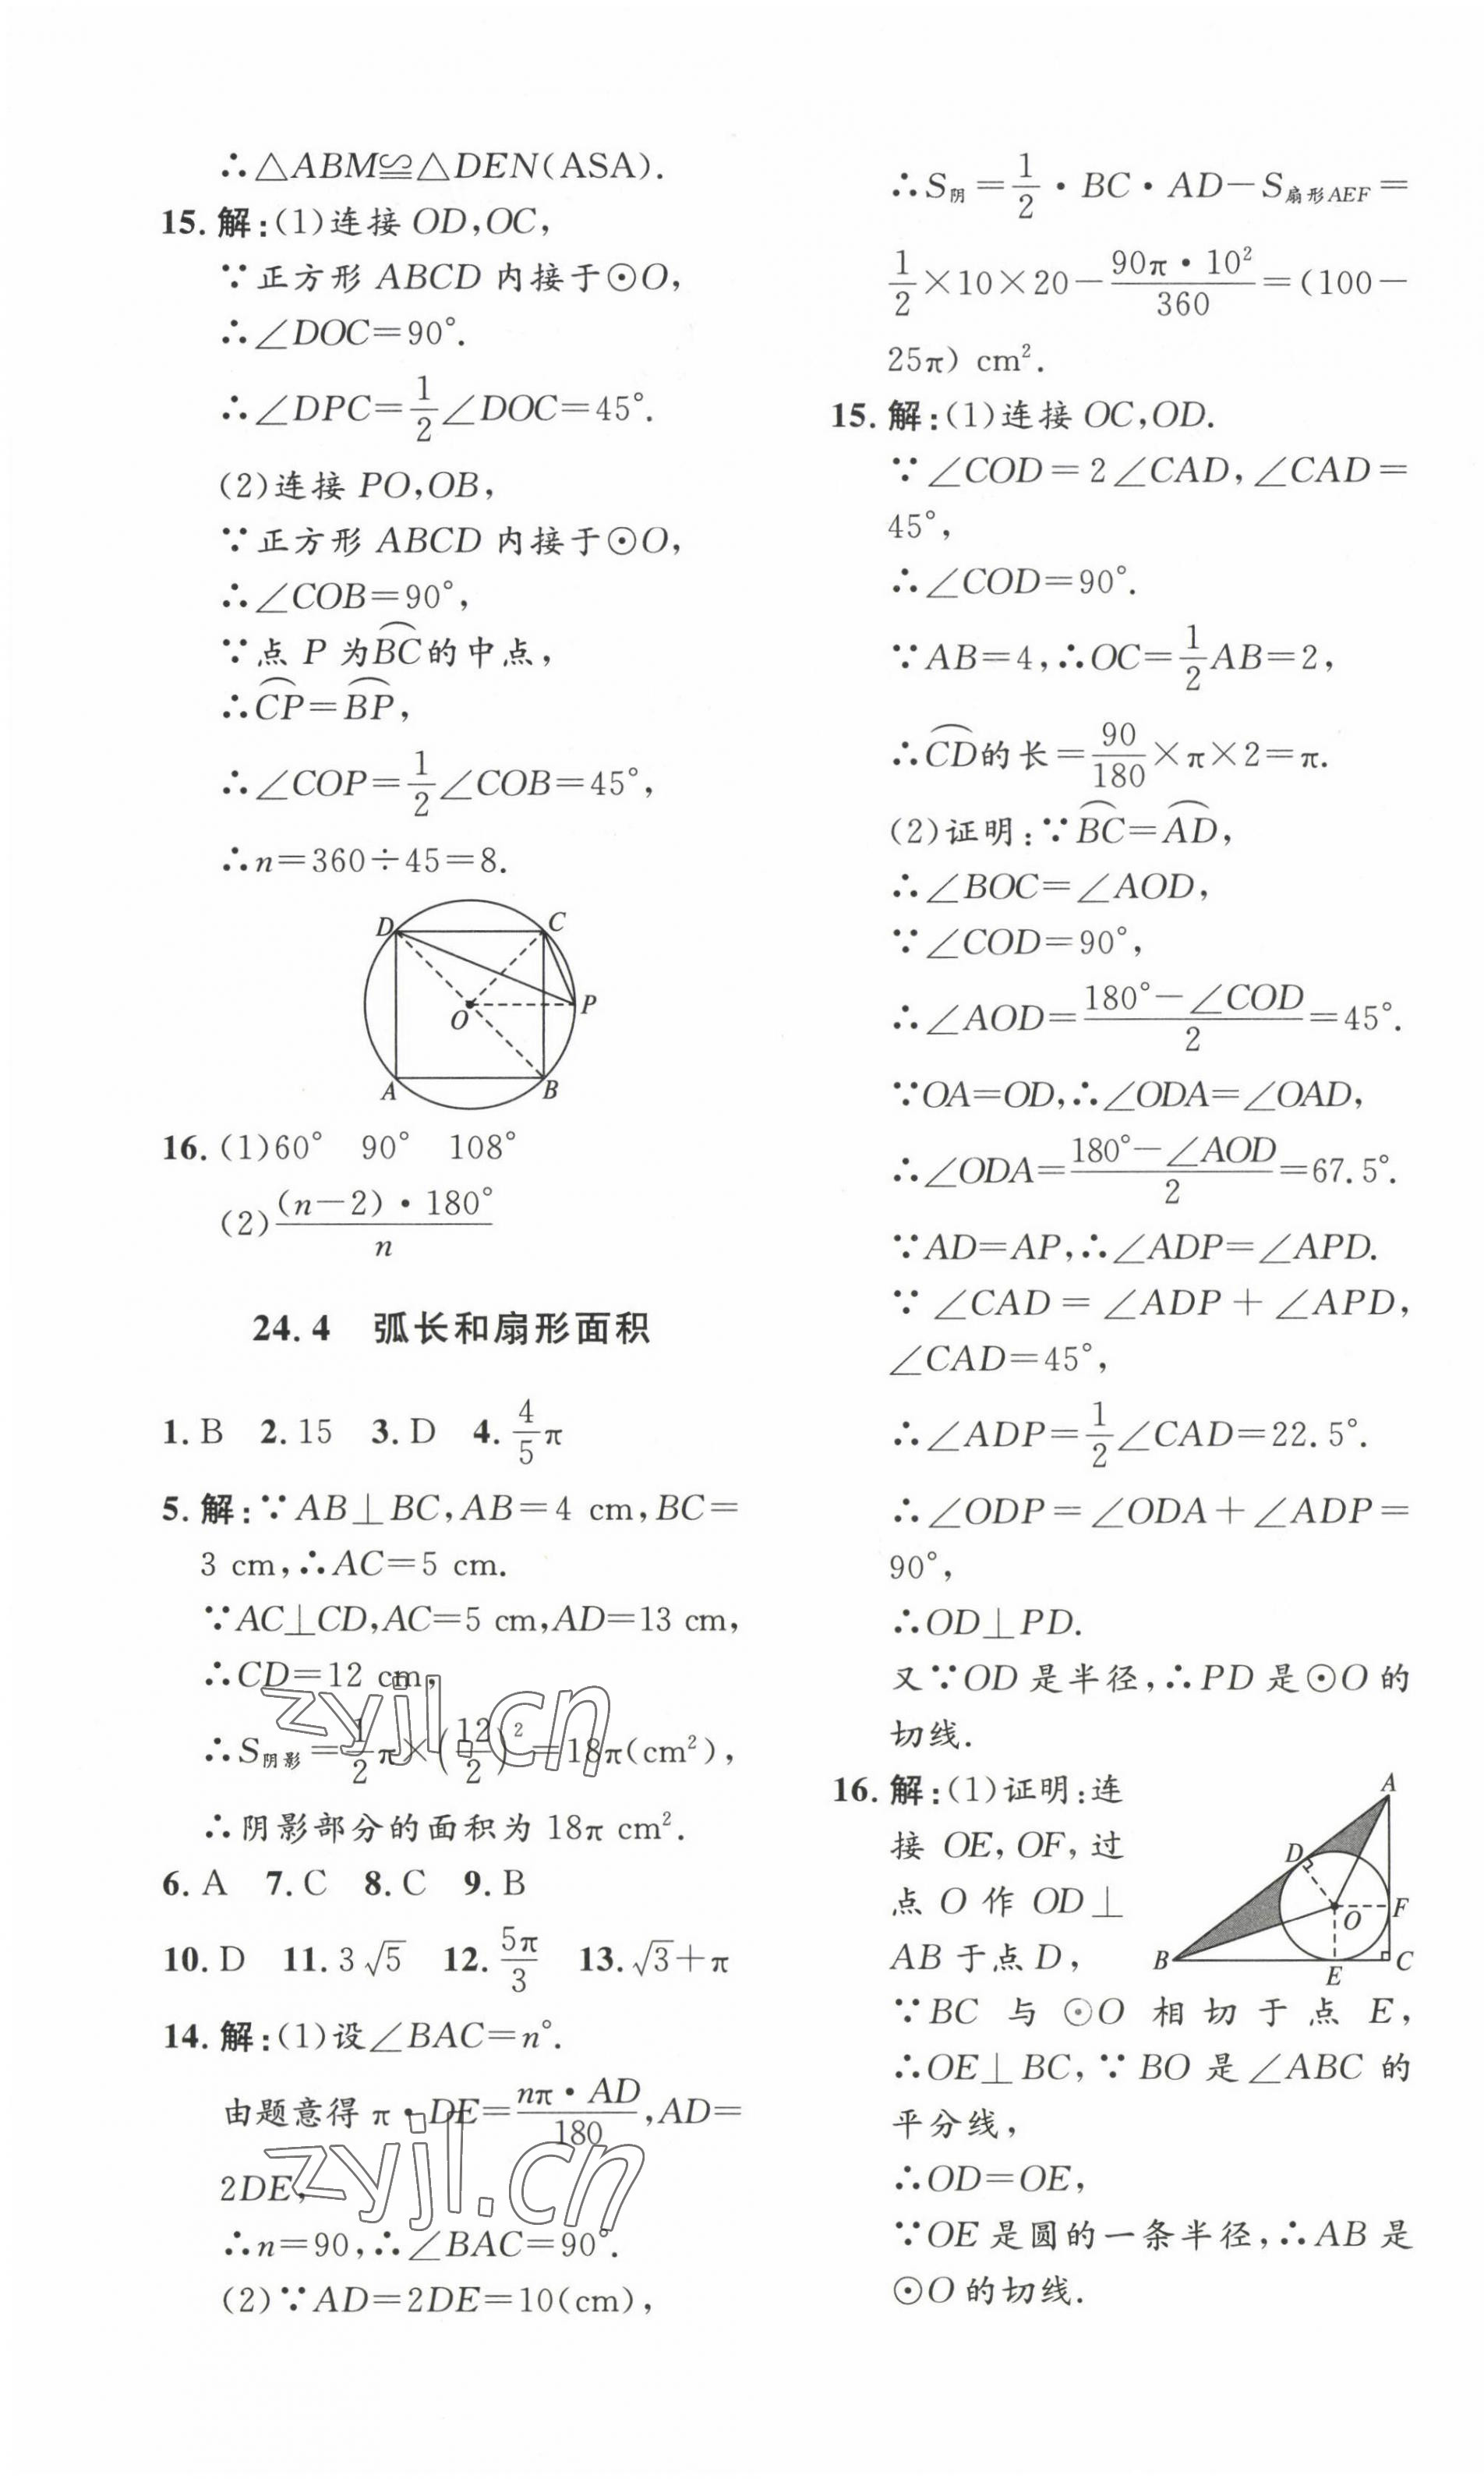 ∴△ABM≌△DEN(ASA).
15. 解:(1)连接 OD,OC,
∵正方形 ABCD 内接于⊙O,
∴∠DOC=90°.
∴∠DPC=1/2∠DOC=45°.
(2)连接 PO,OB,
∵正方形 ABCD 内接于⊙O,
∴∠COB=90°,
∵点 P 为BC⌒的中点,
∴CP⌒=BP⌒,
∴∠COP=1/2∠COB=45°,
∴n=360÷45=8.
D C
O P
A B
16. (1)60° 90° 108°
(2)(n-2)·180°/n
24.4 弧长和扇形面积
1. B 2. 15 3. D 4. 4/5π
5. 解:∵AB⊥BC,AB=4 cm,BC=
3 cm,∴AC=5 cm.
∵AC⊥CD,AC=5 cm,AD=13 cm,
∴CD=12 cm,
∴S阴影=1/2π×(12/2)²=18π(cm²),
∴阴影部分的面积为 18π cm².
6. A 7. C 8. C 9. B
10. D 11. 3√5 12. 5π/3 13. √3+π
14. 解:(1)设∠BAC=n°.
由题意得 π·DE=nπ·AD/180,AD=
2DE,
∴n=90,∴∠BAC=90°.
(2)∵AD=2DE=10(cm),
zyjl.cn
zyjl.cn
∴S阴=1/2·BC·AD-S扇形AEF=
1/2×10×20-90π·10²/360=(100-
25π) cm².
15. 解:(1)连接 OC,OD.
∵∠COD=2∠CAD,∠CAD=
45°,
∴∠COD=90°.
∵AB=4,∴OC=1/2AB=2,
∴CD⌒的长=90/180×π×2=π.
(2)证明:∵BC⌒=AD⌒,
∴∠BOC=∠AOD,
∵∠COD=90°,
∴∠AOD=180°-∠COD/2=45°.
∵OA=OD,∴∠ODA=∠OAD,
∴∠ODA=180°-∠AOD/2=67.5°.
∵AD=AP,∴∠ADP=∠APD.
∵∠CAD=∠ADP+∠APD,
∠CAD=45°,
∴∠ADP=1/2∠CAD=22.5°.
∴∠ODP=∠ODA+∠ADP=
90°,
∴OD⊥PD.
又∵OD 是半径,∴PD 是⊙O 的
切线.
16. 解:(1)证明:连
接 OE,OF,过
点 O 作 OD⊥
AB 于点 D,
A
D
O F
B E C
∵BC 与 ⊙O 相切于点 E,
∴OE⊥BC,∵BO 是∠ABC 的
平分线,
∴OD=OE,
∵OE 是圆的一条半径,∴AB 是
⊙O 的切线.